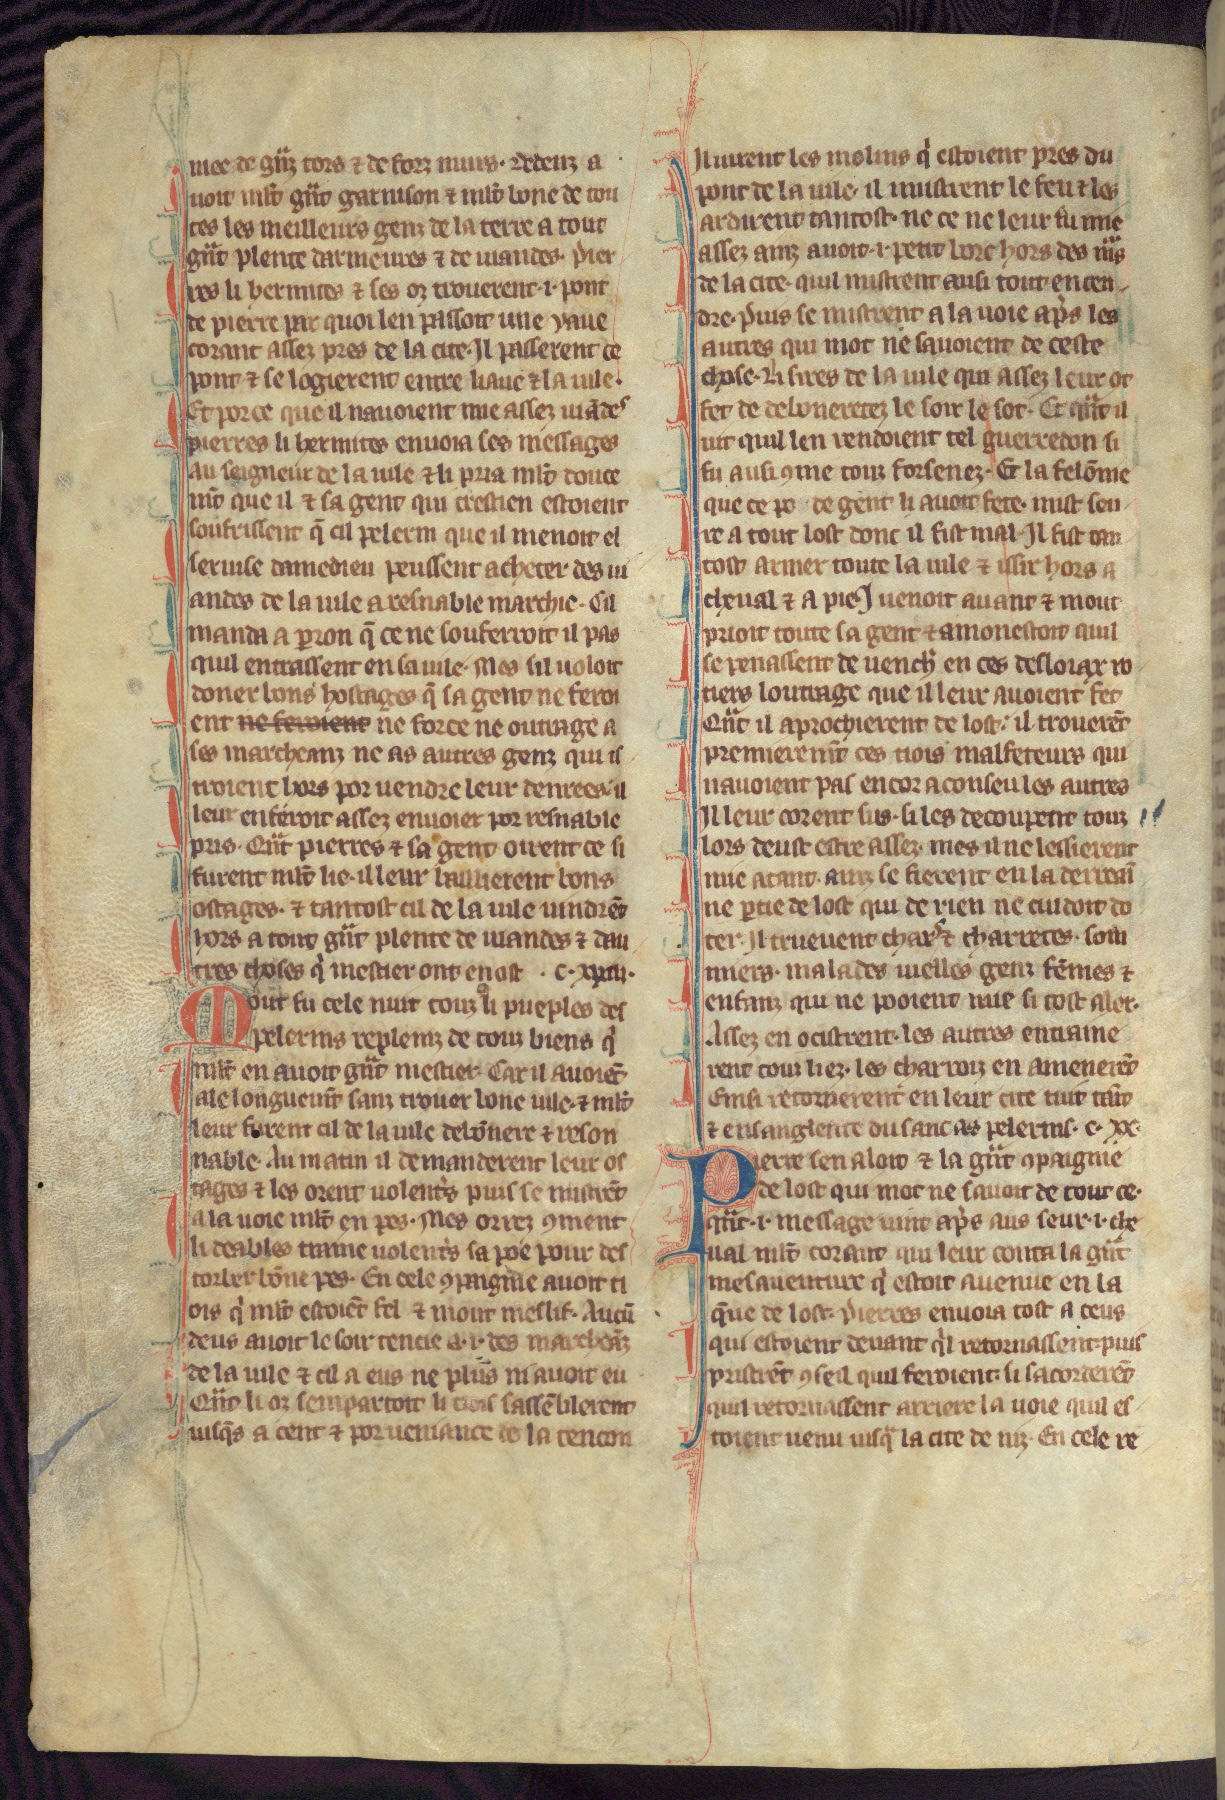 mee de gñz tors ⁊ de forz murs. Dedenz a
uoit ml̃t gñt garnison ⁊ ml̃t bone de tou
tes les meilleurs genz de la terre a tout
gñt plente darmeures ⁊ de uiandes. Pier
res li hermites ⁊ ses oz trouerent .i. pont
de pierre par quoi len passoit une yaue
corant assez pres de la cite. Il passerent ce
pont ⁊ se logierent entre liaue ⁊ la uile.
Et por ce que il nauoient mie assez uiãdes
pierres li hermites enuoia ses messages
au seigneur de la uile ⁊ li pria ml̃t douce
mt̃ que il ⁊ sa gent qui crestien estoient
soufrissent q̃ cil pelerin que il menoit el
seruise damedieu peussent acheter des ui
andes de la uile a resnable marchie. Cil
manda a p̃ron q̃ ce ne souferroit il pas
quil entrassent en sa uile. Mes sil uoloit
doner bons hostages q̃ sa gent ne feroi
ent ne feroient ne force ne outrage a
ses marcheanz ne as autres genz qui is
troient hors por uendre leur denrees. il
leur en feroit assez enuoier por resnable
pris. Qñt pierres ⁊ sa gent oirent ce si
furent ml̃t lie. il leur baillierent bons
ostages. ⁊ tantost cil de la uile uindrẽt
hors a tout gñt plente de uiandes ⁊ dau
tres choses q̃ mestier ont en ost . c. xxiii.
Mout fu cele nuit touz li pueples des
pelerins repleniz de touz biens q̃
ml̃t en auoit gñt mestier. Car il auoiẽt
ale longuemt̃ sanz trouer bone uile. ⁊ ml̃t
leur furent cil de la uile debõnere ⁊ reson
nable. Au matin il demanderent leur os
tages ⁊ les orent uolentr̃s puis se mistrẽt
a la uoie ml̃t en pes. Mes orrez ꝯment
li deables traine uolentr̃s sa poe pour des
torber bõne pes. En cele ꝯpaignie auoit ti
ois q̃ ml̃t estoiẽt fel ⁊ mout meslif. Aucũ
deus auoit le soir tencie a .i. des marcheãz
de la uile ⁊ cil a eus ne plus ni auoit eu
Qñt li oz sempartoit li tiois sassẽblerent
iusq̃s a cent ⁊ por ueniance de la tencon
Il uirent les molins q̃ estoient pres du
pont de la uile. il mistrent le feu ⁊ les
ardirent tantost. ne ce ne leur fu mie
assez ainz auoit .i. petit borc hors des mũs
de la cite. quil mistrent ausi tout en cen
dre. Puis se mistrent a la uoie ap̃s les
autres qui mot ne sauoient de ceste
chose. Li sires de la uile qui assez leur ot
fet de deboneretez le soir le sot. Et qñt il
uit quil len rendoient tel guerredon si
fu ausi ꝯme touz forsenez. Et la felõnie
que ce po de gent li auoit fete. mist seu
re a tout lost donc il fist mal. Il fist tan
tost armer toute la uile ⁊ issir hors a
cheual ⁊ a pie. Il uenoit auant ⁊ mout
prioit toute sa gent ⁊ amonestoit quil
se penassent de uench̃ en ces desloiax ro
tiers loutrage que il leur auoient fet
Qñt il aprochierent de lost. il trouerẽt
premieremt̃ ces tiois malfeteurs qui
nauoient pas encor aconseu les autres
Il leur corent sus. si les decoupent touz
lors deust estre assez. mes il ne lessierent
mie atant. ainz se fierent en la derreañ
ne p̃tie de lost qui de rien ne cuidoit do
ter. Il truevent char̃s ⁊ charretes. som
miers. malades uielles genz fẽmes ⁊
enfanz qui ne pooient mie si tost aler.
Assez en ocistrent. les autres en traine
rent touz liez. les charroiz en amenerẽt
Einsi retornerent en leur cite tuit tait̃
⁊ ensanglente du sanc as pelerins. c. xx.
Pierre sen aloit ⁊ la gñt ꝯpaignie
de lost qui mot ne sauoit de tout ce.
qñt .i. message uint ap̃s aus seur .i. che
ual ml̃t corant qui leur conta la gñt
mesauenture q̃ estoit auenue en la
q̃ue de lost. Pierres enuoia tost a ceus
qui estoient deuant q̃l retornassent. puis
pristrẽt ꝯseil quil feroient. si sacorderẽt
quil retornassent arriere la uoie quil es
toient uenu iusq̃ la cite de niz. En cele re